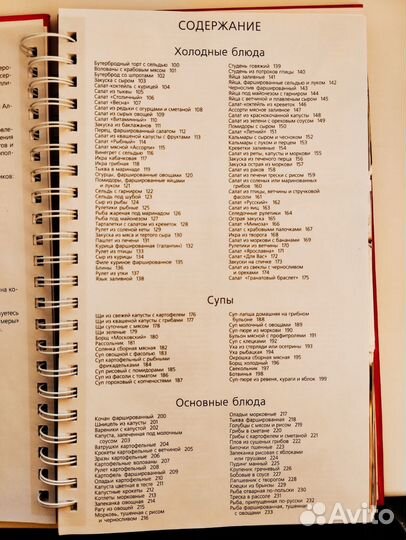 СОДЕРЖАНИЕ
Холодные блюда
Бутербродный торт с сельдью 100
Волованы с крабовым мясом 101
Бутерброд со шпротами 102
Закуска с сыром 103
Салат-коктейль с курицей 104
Салат из тыквы 105
Салат «Столичный» 106
Салат «Весна» 107
Салат из редьки с огурцами и сметаной 108
Салат из сырых овощей 109
Салат «Витаминный» 110
Салат из баклажанов 111
Перец, фаршированный салатом 112
Салат из квашеной капусты с фруктами 113
Салат «Рыбный» 114
Салат мясной «Ассорти» 115
Винегрет с сельдью 116
Икра кабачковая 117
Икра грибная 118
Тыква в маринаде 119
Огурцы, фаршированные овощами 120
Помидоры, фаршированные яйцами
и луком 121
Сельдь с гарниром 122
Сельдь под шубой 123
Сыр из рыбы 124
Рулетики рыбные 125
Рыба жареная под маринадом 126
Рыба под майонезом 127
Тарталетки с салатом и креветок 128
Рулет из соленой кеты 129
Закуска из мяса и тертого сыра 130
Паштет из печени 131
Курица фаршированная (галантин) 132
Рулет из птицы 133
Сыр из курицы 134
Филе куриное фаршированное 135
Блины 136
Рулет из утки 137
Язык заливной 138
Студень говяжий 139
Студень из потрохов птицы 140
Яйца заливные 141
Яйца, фаршированные сельдью и луком 142
Чернослив фаршированный 143
Яйца под майонезом с гарниром 144
Яйца с ветчиной и плавленым сыром 145
Салат-коктейль из креветок 146
Ассорти мясное заливное 147
Салат из краснокочанной капусты 148
Салат из зелени с ореховым соусом 149
Помидоры с сыром 150
Салат «Летний» 151
Кальмары с сыром и чесноком 152
Кальмары с луком и перцем 153
Креветки заливные 154
Салат из репы, капусты и моркови 155
Закуска из печеного перца 156
Закуска острая из моркови 157
Салат из раков 158
Салат из печени трески с рисом 159
Салат из соленых или маринованных
грибов 160
Салат из птицы, ветчины и стручковой
фасоли 161
Салат «Русский» 162
Салат из яиц 163
Селедочные рулетики 164
Острая закуска 165
Салат «Мимоза» 166
Салат с крабовыми палочками 167
Икра из творога 168
Салат из моркови с бананами 169
Рулетики из ветчины 170
Салат «Ярославна» 171
Салат «Для Вас» 172
Закуски на спичке 173
Салат из свеклы с черносливом
и орехами 174
Салат «Гранатовый браслет» 175
Супы
Щи из свежей капусты с картофелем 176
Щи из квашеной капусты с грибами 177
Щи суточные с мясом 178
Щи зеленые 179
Борщ «Московский» 180
Рассольник 181
Солянка сборная мясная 182
Суп овощной с фасолью 183
Суп картофельный с рыбными
фрикадельками 184
Суп рисовый с помидорами 185
Суп из фасоли с томатом 186
Суп гороховый с копченостями 187
Суп лапша домашняя на грибном
бульоне 188
Суп молочный с овощами 189
Суп-пюре из моркови 190
Бульон мясной с профитролями 191
Суп с клецками 192
Уха из стерляди или осетрины 193
Уха рыбацкая 194
Окрошка сборная мясная 195
Борщ холодный 196
Свекольник 197
Ботвинья 198
Суп-пюре из ревеня, кураги и яблок 199
Основные блюда
Кочан фаршированный 200
Шницель из капусты 201
Вареники с капустой 202
Капуста, запеченная под молочным
соусом 203
Ватрушки картофельные 204
Крокеты картофельные с ветчиной 205
Зразы картофельные 206
Картофельные волованы 207
Рулет картофельный 208
Картофель фаршированный 209
Оладьи картофельные 210
Капуста цветная в тесте 211
Капустные крокеты 212
Котлеты морковные 213
Запеканка овощная 214
Рагу из овощей 215
Морковь, тушенная с рисом
и черносливом 216
Оладьи морковные 217
Тыква фаршированная 218
Голубцы с мясом и рисом 219
Грибы в сметане 220
Грибы с картофелем и сметаной 221
Плов из сушеных грибов 222
Биточки пшенные 223
Запеканка рисовая с яблоками
или грушами 224
Пудинг манный 225
Крупеник гречневый 226
Бобовые с соусом 227
Лапшевник с творогом 228
Клецки из брынзы 229
Рыба отварная по-польски 230
Треска в рассоле 231
Рыба, припущенная по-русски 232
Рыба фаршированная, тушенная
с овощами 233
Avito